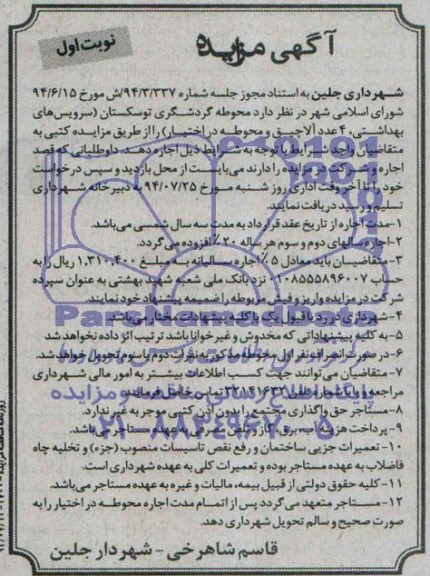 آگهی مزایده
نوبت اول
شهرداری جلین به استناد مجوز جلسه شماره ۹۴/۳/۳۳۷/ش مورخ ۹۴/۶/۱۵
شورای اسلامی شهر در نظر دارد محوطه گردشگری توسکستان (سرویس‌های
بهداشتی، ۴ عدد آلاچیق و محوطه در اختیار) را از طریق مزایده کتبی به
متقاضیان واجد شرایط با توجه به شرایط ذیل اجاره دهد. داوطلبانی که قصد
اجاره و شرکت در مزایده را دارند می‌بایست از محل بازدید و سپس درخواست
خود را تا آخر وقت اداری روز شنبه مورخ ۹۴/۰۷/۲۵ به دبیرخانه شهرداری
تسلیم و رسید دریافت نمایند.
۱-مدت اجاره از تاریخ عقد قرارداد به مدت سه سال شمسی می‌باشد.
۲-اجاره سالهای دوم و سوم هر ساله ۲۰٪ افزوده می‌گردد.
۳-متقاضیان باید معادل ۵٪ اجاره سالیانه به مبلغ ۱,۳۱۰,۴۰۰ ریال را به
حساب ۰۱۰۸۵۵۵۸۹۶۰۰۷ نزد بانک ملی شعبه شهید بهشتی به عنوان سپرده
شرکت در مزایده واریز و فیش مربوطه را ضمیمه پیشنهاد خود نمایند.
۴-شهرداری در رد یا قبول یک یا کلیه پیشنهادات مختار می‌باشد.
۵- به کلیه پیشنهاداتی که مخدوش و غیر خوانا باشد ترتیب اثر داده نخواهد شد
۶-در صورت انصراف نفر اول محیط مذکور به نفرات دوم یا سوم تحویل خواهد شد.
۷- متقاضیان می‌توانند جهت کسب اطلاعات بیشتر به امور مالی شهرداری
مراجعه و یا با شماره تلفن ۳۲۱۴۱۶۳۲ تماس حاصل فرمایند.
۸-مستاجر حق واگذاری مجتمع را بدون اذن کتبی موجر به غیر ندارد.
۹- پرداخت هزینه آب، برق، گاز و تلفن مصرفی به عهده مستاجر می‌باشد.
۱۰-تعمیرات جزیی ساختمان و رفع نقص تاسیسات منصوب (جزء) و تخلیه چاه
فاضلاب به عهده مستاجر بوده و تعمیرات کلی به عهده شهرداری است.
۱۱-کلیه حقوق دولتی از قبیل بیمه، مالیات و غیره به عهده مستاجر می‌باشد.
۱۲-مستاجر متعهد می‌گردد پس از اتمام مدت اجاره محوطه در اختیار را به
صورت صحیح و سالم تحویل شهرداری دهد.
قاسم شاهرخی - شهردار جلین
ParsNamadData
پایگاه اطلاع رسانی مناقصه و مزایده
۰۲۱-۸۸۳۴۹۶۷۰-۵